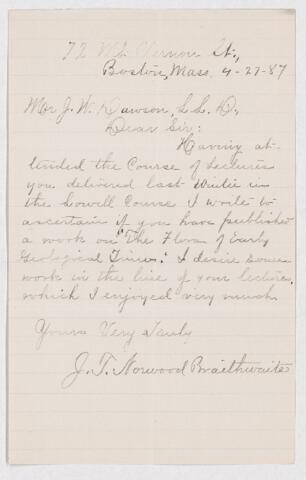 72 Mt. Vernon St.,
Boston, Mass. 4-27-87
Mr J. W. Dawson, LL. D,
Dear Sir:
Having at-
tended the Course of Lectures
you delivered last Winter in
the Lowell Course I write to
ascertain if you have published
a work on "The Flora of Early
Geological Times." I desire some
work in the line of your lectures,
which I enjoyed very much.
Yours Very Truly
J. T. Norwood Braithwaite